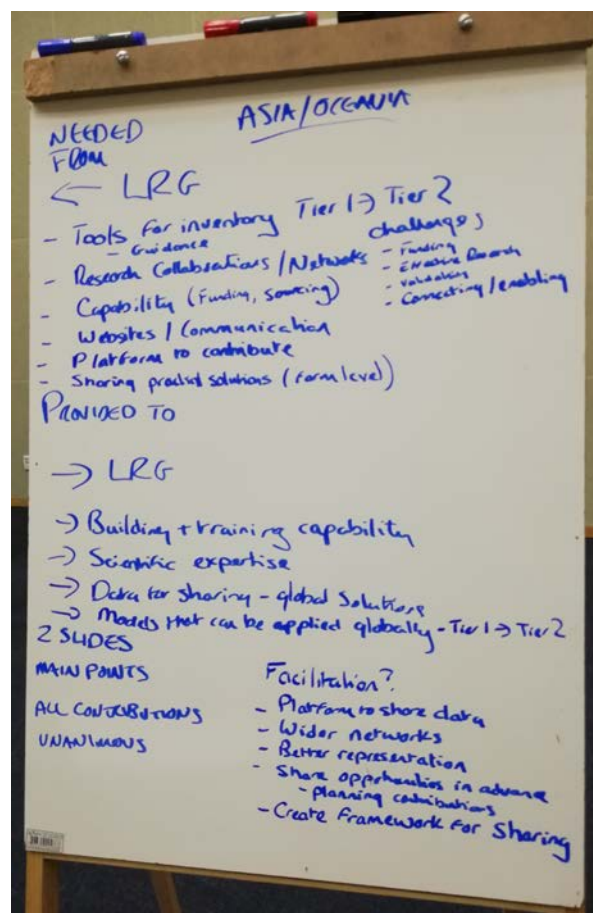 ASIA/OCEANIA
NEEDED
FROM
← LRG
- Tools for inventory Tier 1 → Tier 2
- Guidance
- Research Collaborations / Networks
- Capability (Funding, sourcing)
- Websites / Communication
- Platform to contribute
- Sharing practical solutions (farm level)
challenges
- Funding
- Effective Research
- Validation
- Connecting / enabling
PROVIDED TO
→ LRG
→ Building + training capability
→ Scientific expertise
→ Data for sharing - global Solutions
→ Models that can be applied globally - Tier 1 → Tier 2
2 SLIDES
MAIN POINTS
ALL CONTRIBUTIONS
UNANIMOUS
Facilitation?
- Platform to share data
- Wider networks
- Better representation
- Share opportunities in advance
- planning contributions
- Create Framework for Sharing